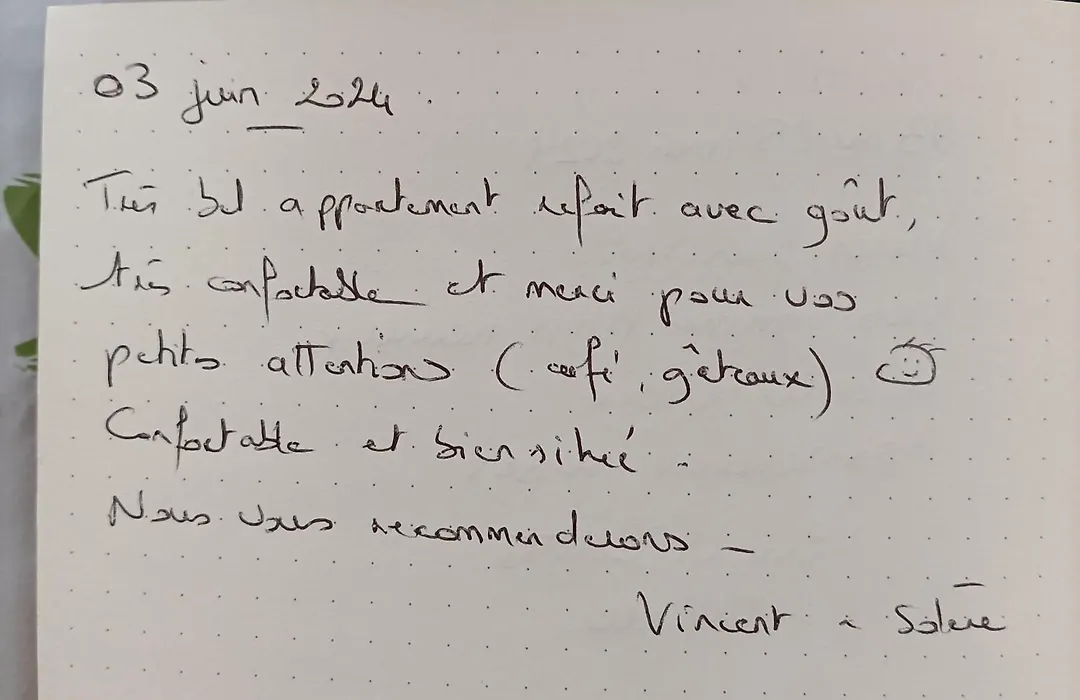 03 juin 2024.
Très bel appartement refait avec goût,
très confortable et merci pour vos
petits attentions (café, gâteaux)
Confortable et bien situé.
Nous vous recommenderons -
Vincent